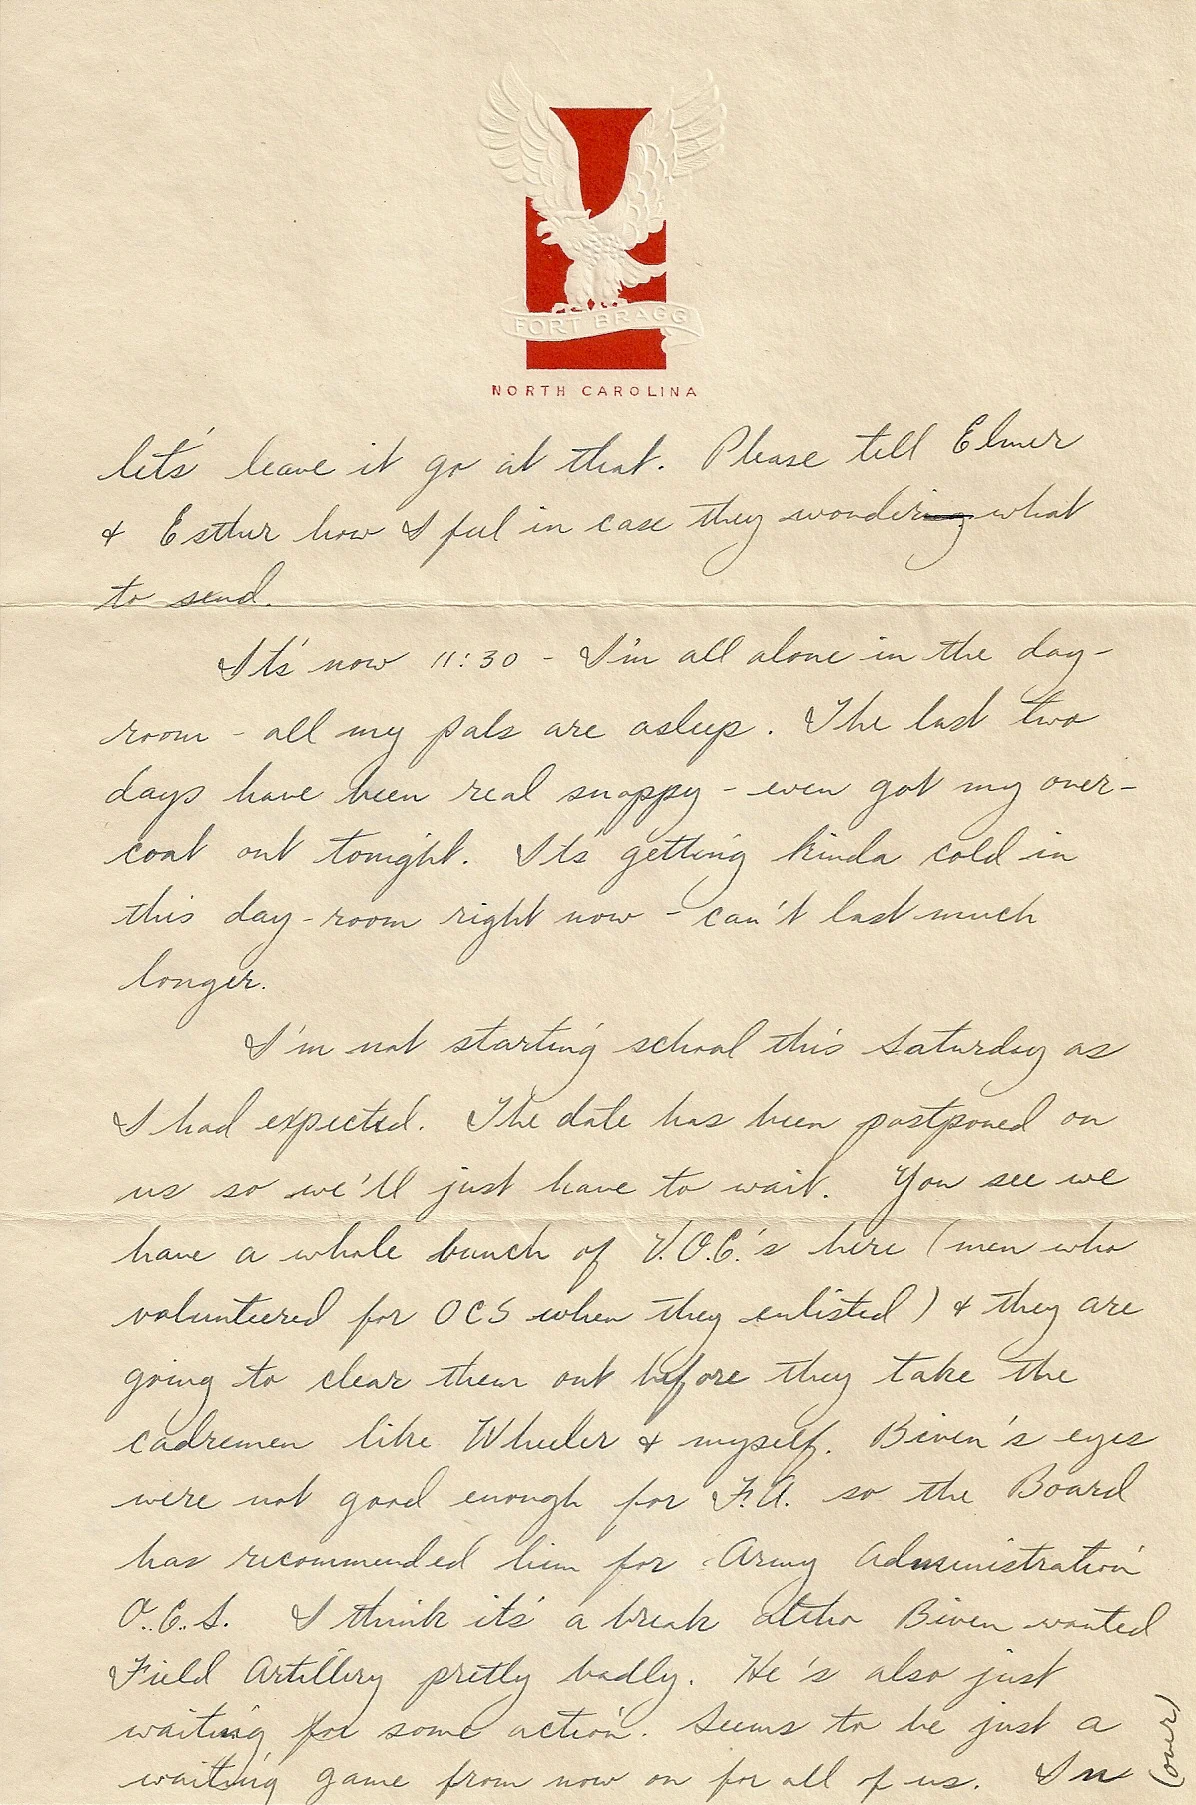 FORT BRAGG
NORTH CAROLINA
let's leave it go at that. Please tell Elmer
& Esther how I feel in case they wondering what
to send.
It's now 11:30 - I'm all alone in the day-
room - all my pals are asleep. The last two
days have been real snappy - even got my over-
coat out tonight. It's getting kinda cold in
this day-room right now - can't last much
longer.
I'm not starting school this Saturday as
I had expected. The date has been postponed on
us so we'll just have to wait. You see we
have a whole bunch of V.O.C.'s here (men who
volunteered for OCS when they enlisted) & they are
going to clear them out before they take the
cadremen like Wheeler & myself. Biven's eyes
were not good enough for F.A. so the Board
has recommended him for Army Administration
O.C.S. I think it's a break altho Biven wanted
Field Artillery pretty badly. He's also just
waiting for some action. Seems to be just a
waiting game from now on for all of us. In
(over)